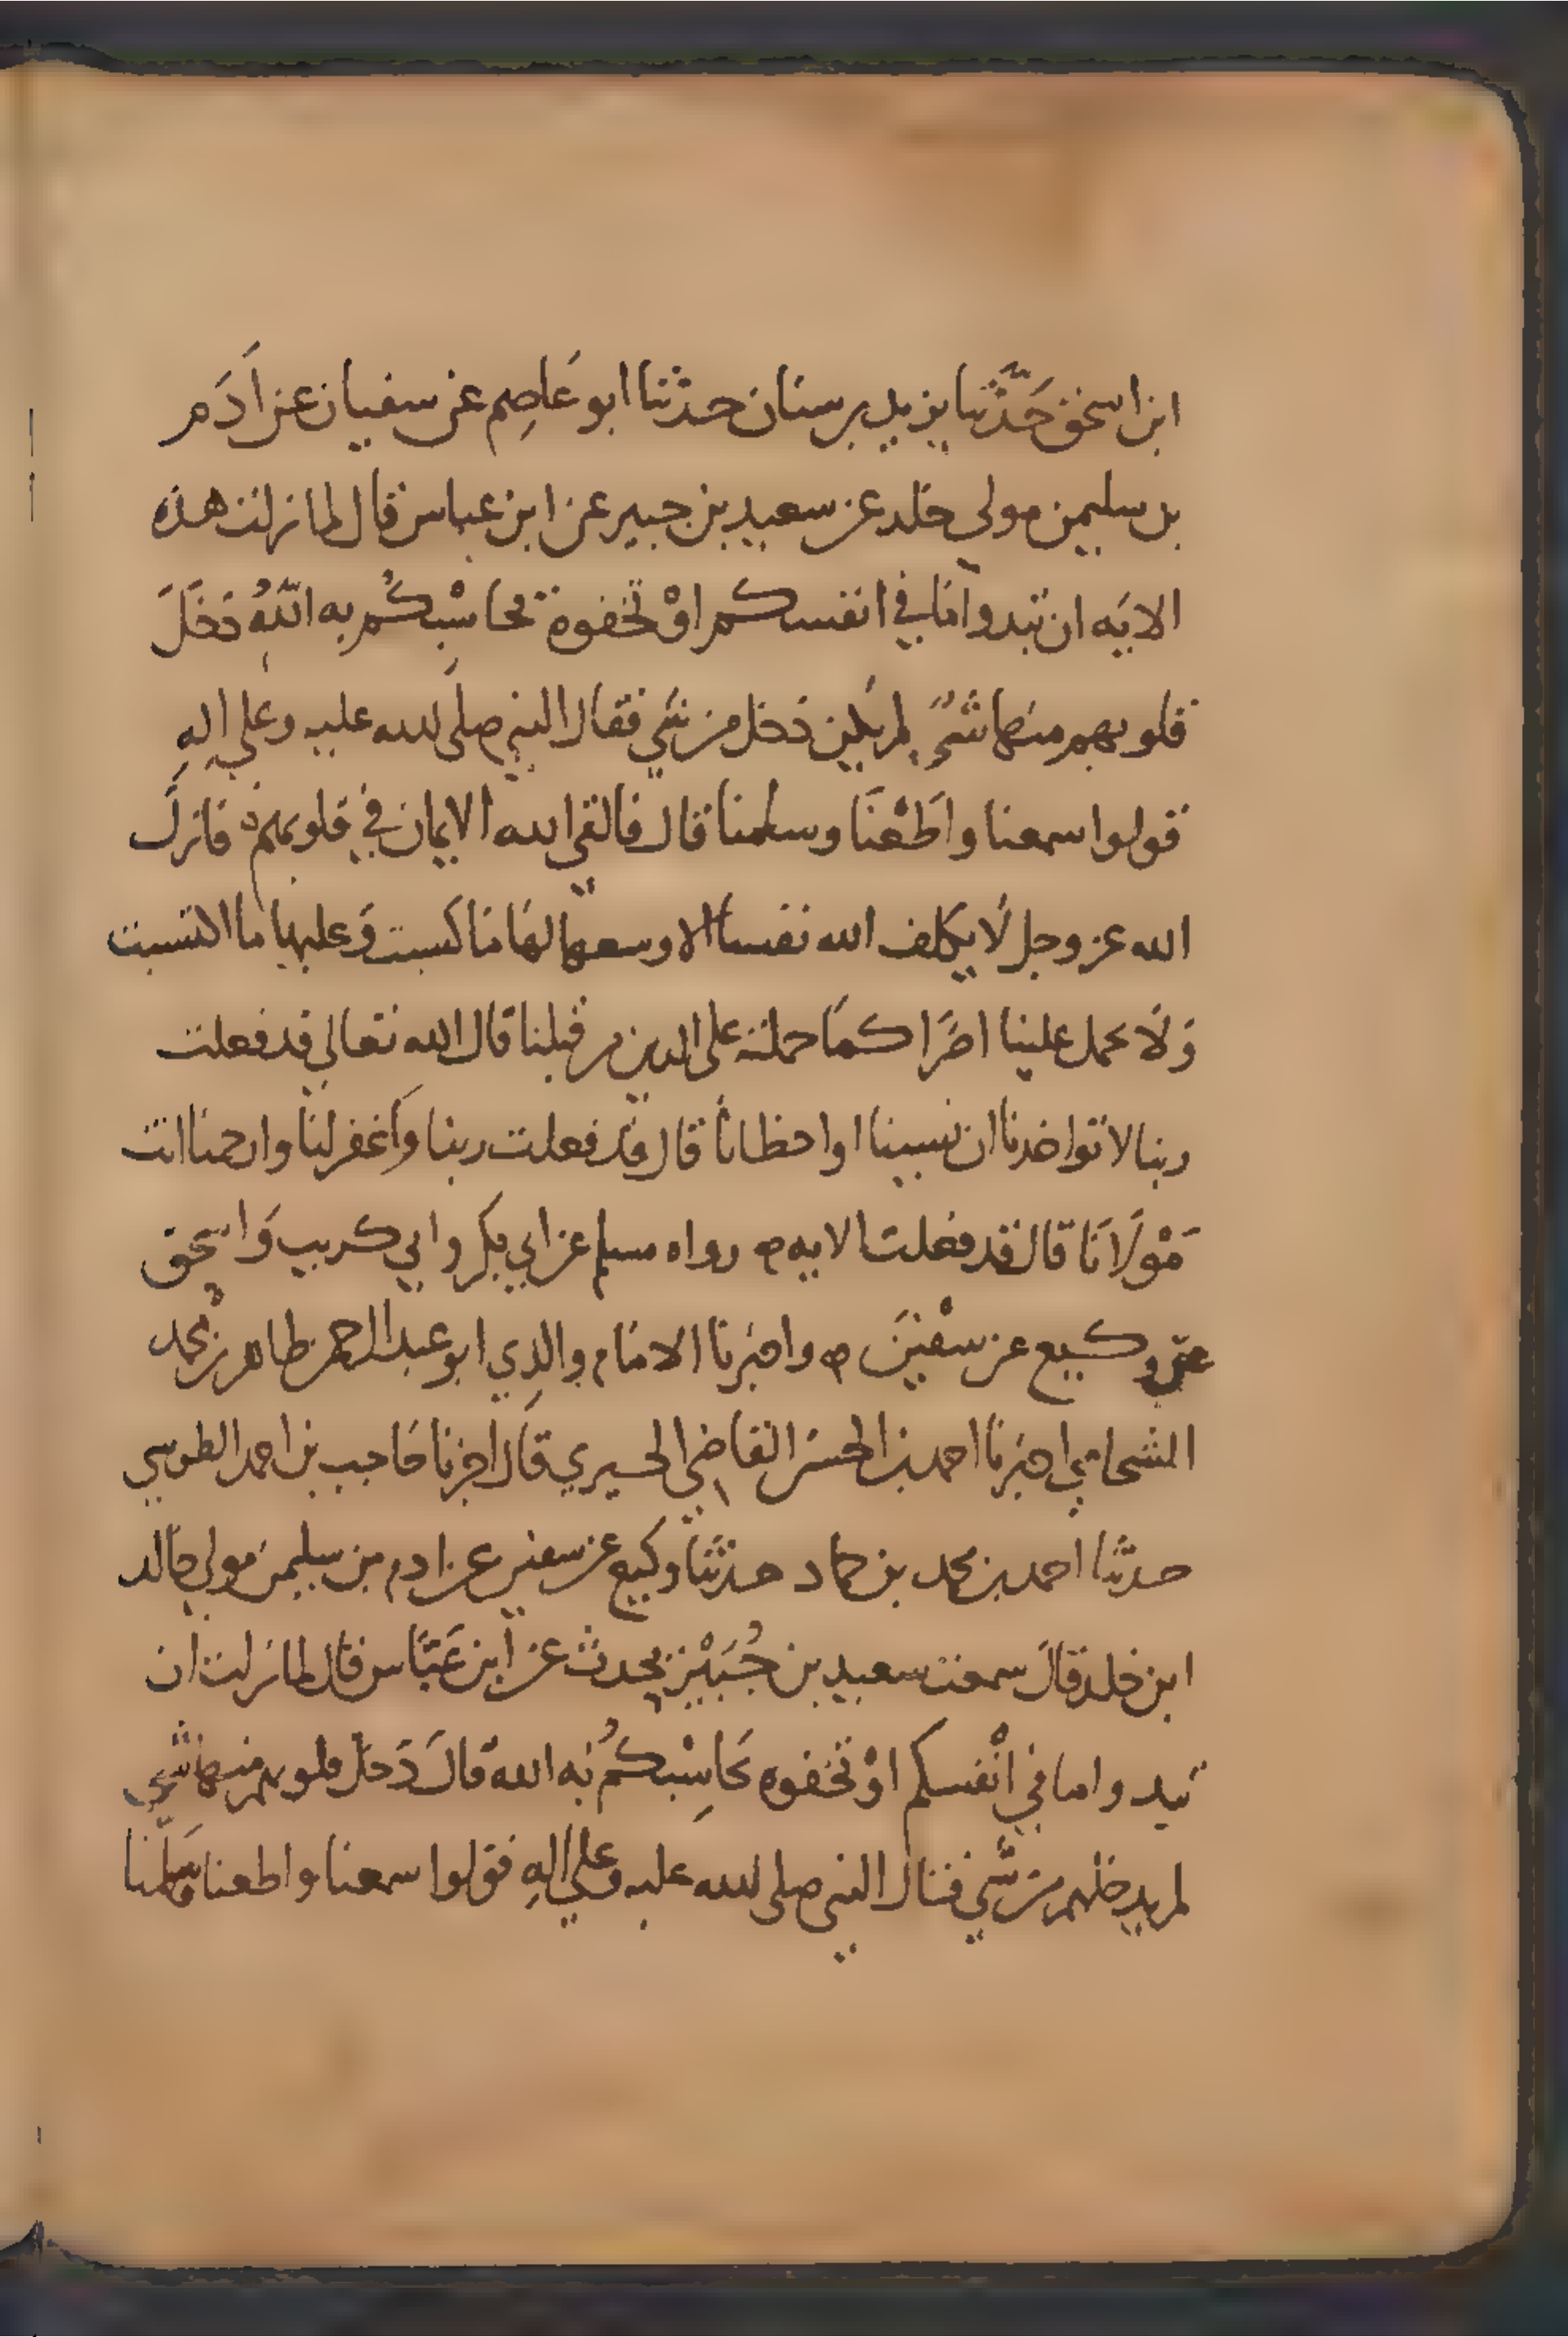 ابن اسحق حَدَّثنا يزيد بن سنان حدثنا ابو عَاصِم عن سفيان عن اَدَم
بن سليمن مولى خلد عن سعيد بن جبير عن ابن عباس قال لما نزلت هذه
الايَه ان تبدوا مَا في انفسكم اوْ تخفوه يحاسْبِكُم به اللّهُ دَخَلَ
قلوبهم منها شيٌ لم يكن دخل من شي فقال النبي صلى الله عليه وعلى الهِ
قولوا سمعنا واَطَعْنَا وسلمنا قال فالقى الله الايمان في قلوبهم فانزل
الله عز وجل لَا يكلف الله نفسا الا وسعها لهَا مَا كسبت وَعليها ما اكتسبت
وَلَا تحمل علينا اصرًا كمَا حملته على الذين من قبلنا قال الله تعالى قد فعلت
ربنا لا تواخذنا ان نسينا او اخطانا قال قد فعلت ربنا وَاغفر لنا وارحمنا انت
مَوْلَانَا قال قد فعَلت الايه ه رواه مسلم عن ابي بكر وابي كريب وَاسحق
عن وكيع عن سفْينَ ه واخبرنا الامَام والدِي ابو عبد الرحمن طاهر بن محمد
الشحامي اخبرنا احمد بن الحسن القاضِي الحيري قَال اخبرنا حَاجب بن احمد الطوسي
حدثنا احمد بن محمد بن حماد حدثنا وكيع عن سفين عن ادم بن سليمن مولى خالد
ابن خلد قالَ سمعت سعيد بن جُبَيْر يحدث عن ابن عَبَّاس قال لما نزلت ان
تبدوا ما في انْفسكم اوْ تخفوه يحَاسِبْكُم بَه الله قالَ دَخلَ قلوبهم منها شي
لم يدخلهم من شَي فقال النبي صلى الله عليه وعلى الهِ قولوا سمعنا واطعنا وَسلمنا